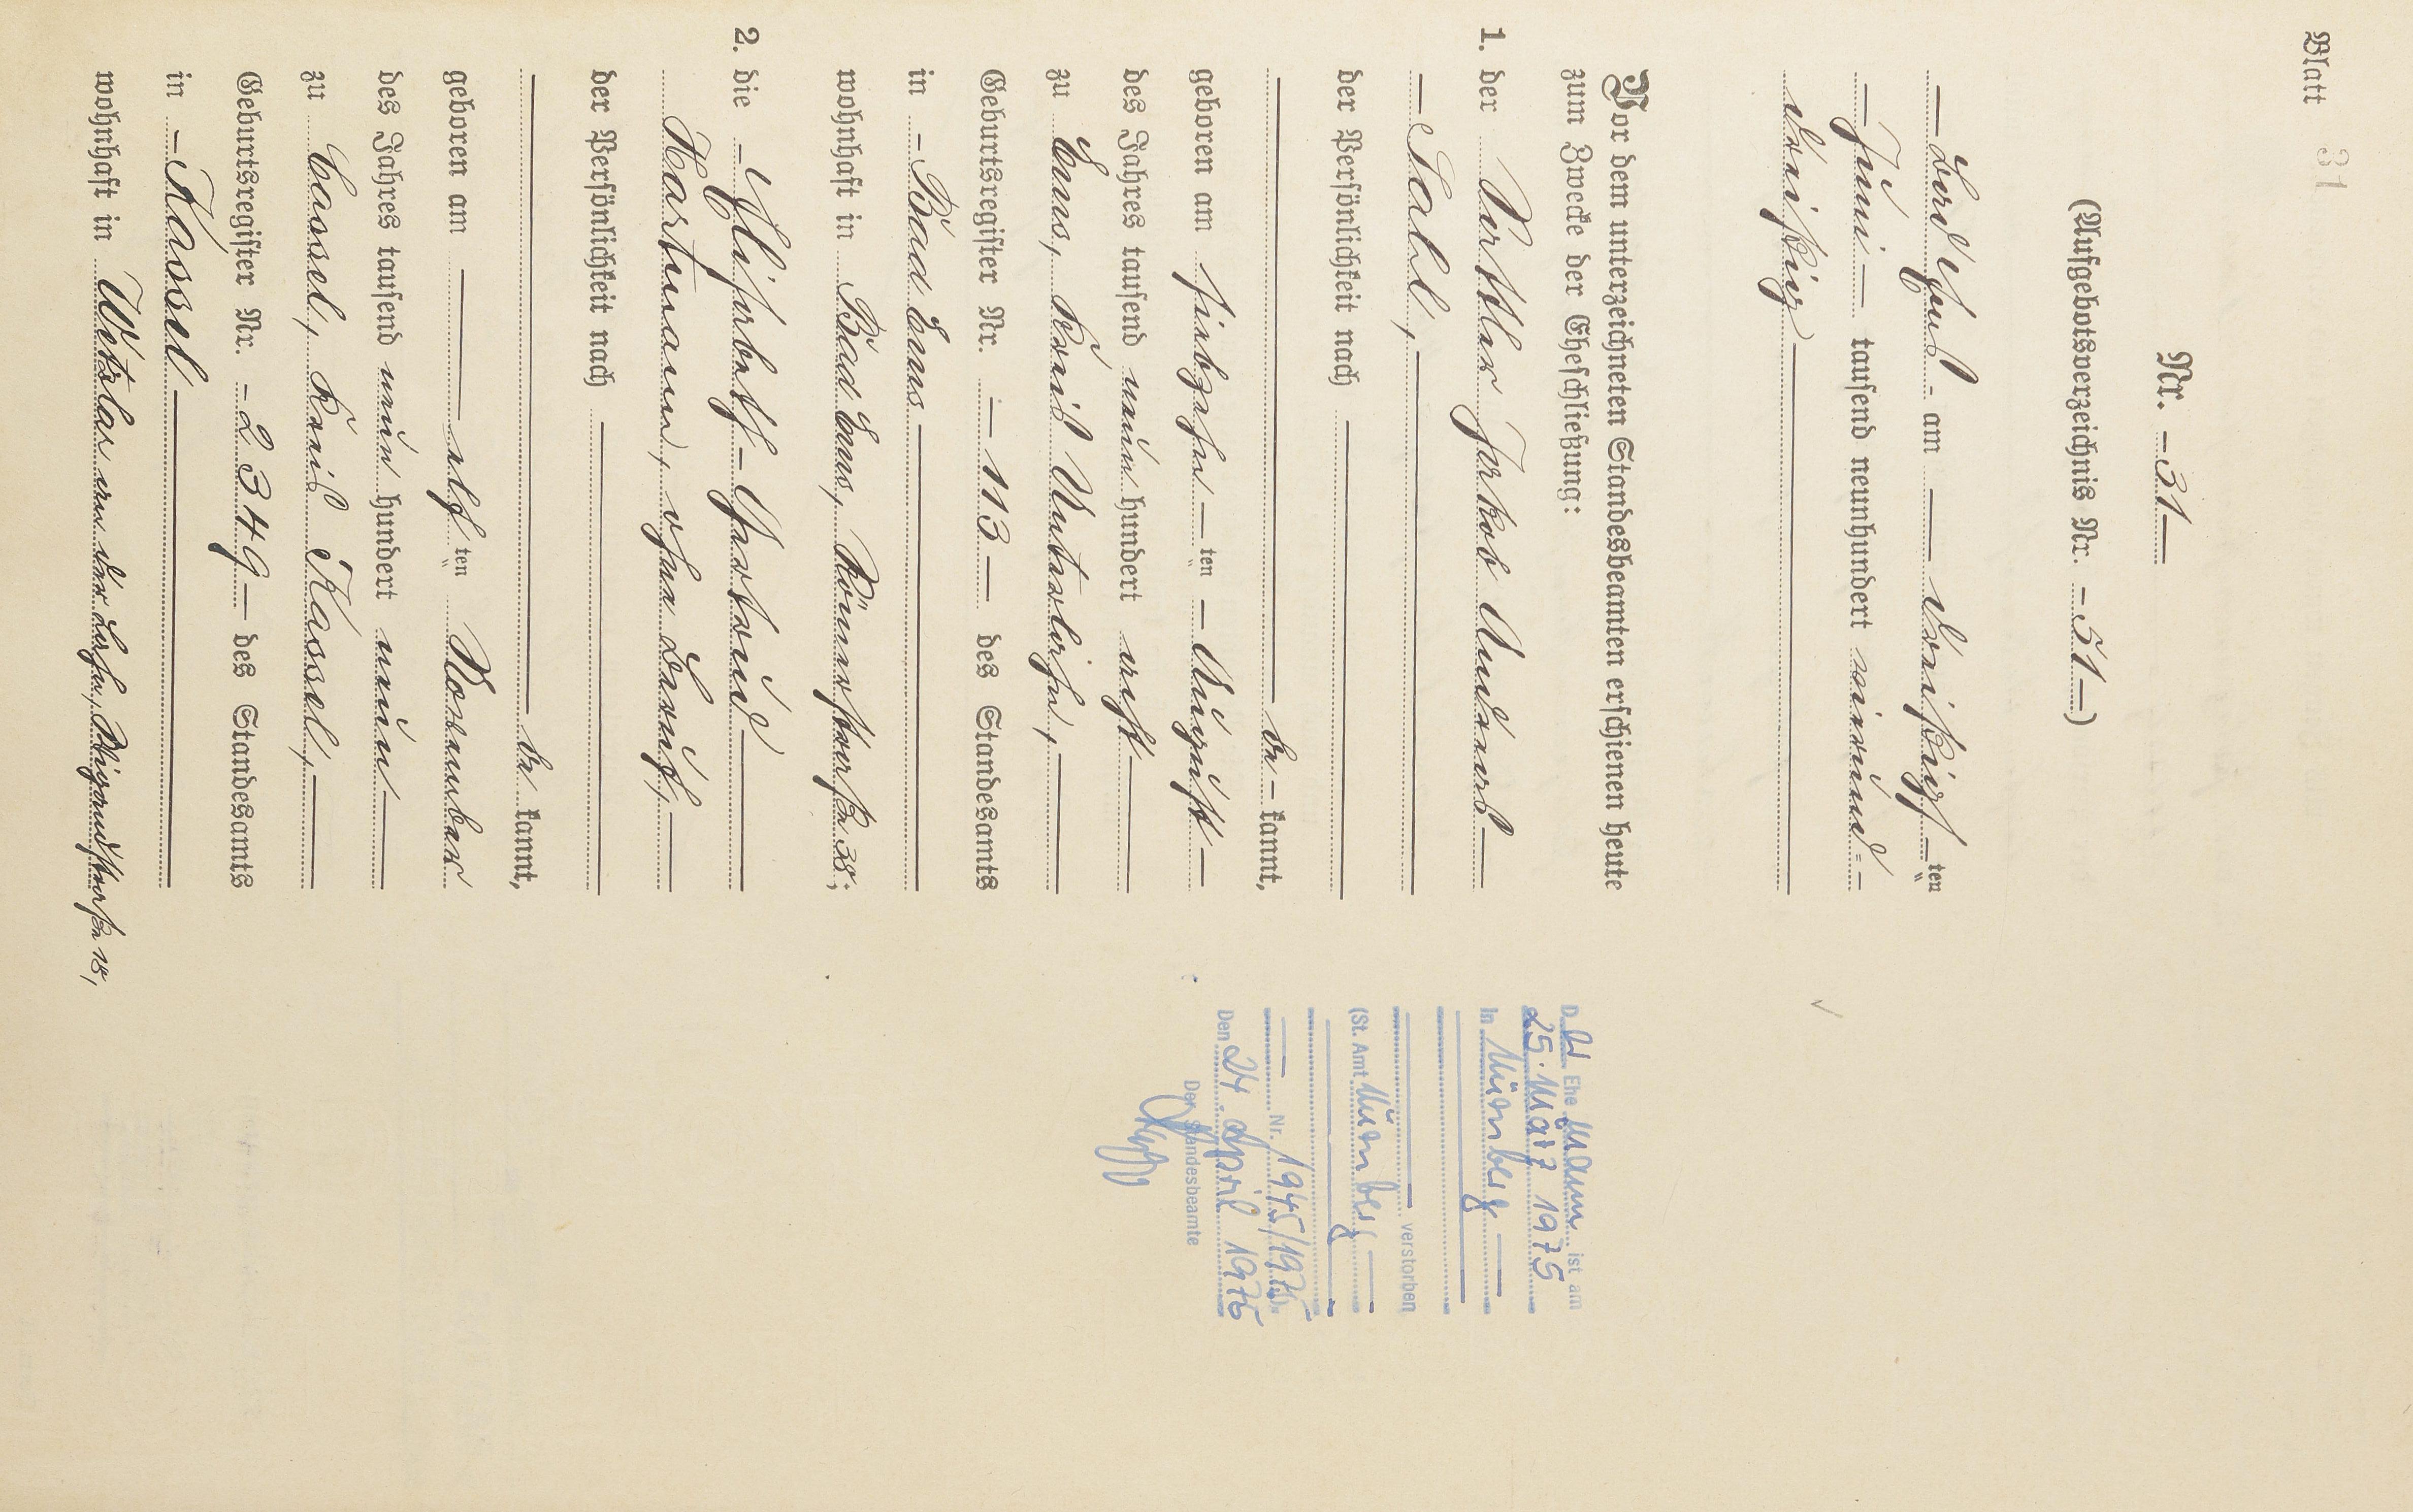 Blatt 31
Nr. – 31 –
(Aufgebotsverzeichnis Nr. – 51 –)
– Bad Ems – am – dreißigs – ten
– Juni – tausend neunhundert vierund-
dreißig –
Vor dem unterzeichneten Standesbeamten erschienen heute
zum Zwecke der Eheschließung:
1. der Jakob Andreas –
– Sahl, –
der Persönlichkeit nach –
– be – kannt,
geboren am siebzehn – ten – August –
des Jahres tausend neun hundert acht –
zu Ems, Kreis Unterlahn, –
Geburtsregister Nr. – 113 – des Standesamts
in – Bad Ems –
wohnhaft in Bad Ems, Römerstraße 38;
2. die – Elisabeth – Gertrud –
Hartmann, ohne Beruf, –
der Persönlichkeit nach –
– be kannt,
geboren am – elf ten November
des Jahres tausend neun hundert neun –
zu Cassel, Kreis Kassel, –
Geburtsregister Nr. – 2349 – des Standesamts
in – Kassel –
wohnhaft in Wetzlar an der Lahn, 18,
D er Ehe mann ist am
25. März 1975
in Nürnberg –
– verstorben
(St. Amt Nürnberg –
– Nr. 1945/1975
Den 24. April 1975
Der Standesbeamte